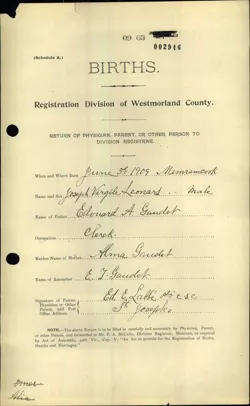 09 65
002946
(Schedule A.)
BIRTHS.
Registration Division of Westmorland County.
RETURN OF PHYSICIAN, PARENT, OR OTHER PERSON TO
DIVISION REGISTRAR.
When and Where Born June 1909 Memramcook
Name and Sex Joseph Virgile Leonard .. Male
Name of Father Edouard A Gaudet
Occupation Clerk
Maiden Name of Mother Alma Gaudet
Name of Accoucher E. T. Gaudet
Signature of Parent,
Physician or Other
Person, and Post
Office Address. Ed. Labbe c.s.c.
St Joseph
NOTE.—The above Return is to be filled in carefully and accurately by Physician, Parent,
or other Person, and forwarded to Mr. F. A. McCully, Division Registrar, Moncton, as required
by Act of Assembly, Cap. V, "An Act to provide for the Registration of Births,
Deaths and Marriages."